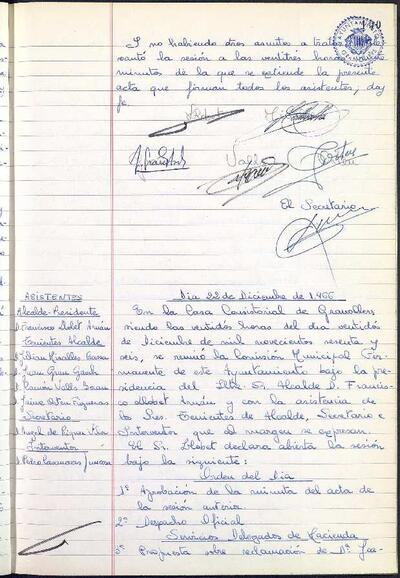 Y no habiendo otros asuntos a tratar
levantó la sesión a las veintitrés horas
minutos de la que se extiende la presente
acta que firman todos los asistentes, doy
fe.
El Secretario
ASISTENTES
Alcalde-Presidente
D. Francisco Llobet Arnán
Tenientes Alcalde
Juan Grau
Ramón Vallés
Jaime
Secretario
Interventor
Dia 22 de Diciembre de 1.966
En la Casa Consistorial de Granollers
siendo las veintidós horas del dia veintidos
de Diciembre de mil novecientos sesenta y
seis, se reunió la Comisión Municipal Per-
manente de este Ayuntamiento bajo la pre-
sidencia del Iltre. Sr. Alcalde D. Francis-
co Llobet Arnán y con la asistencia de
los Sres. Tenientes de Alcalde, Secretario e
Interventor que al margen se expresan.
El Sr. Llobet declara abierta la sesión
bajo la siguiente:
Orden del Dia
1º Aprobación de la minuta del acta de
la sesión anterior
2º Despacho Oficial
Servicios Delegados de Hacienda
3º Propuesta sobre reclamación de Dª